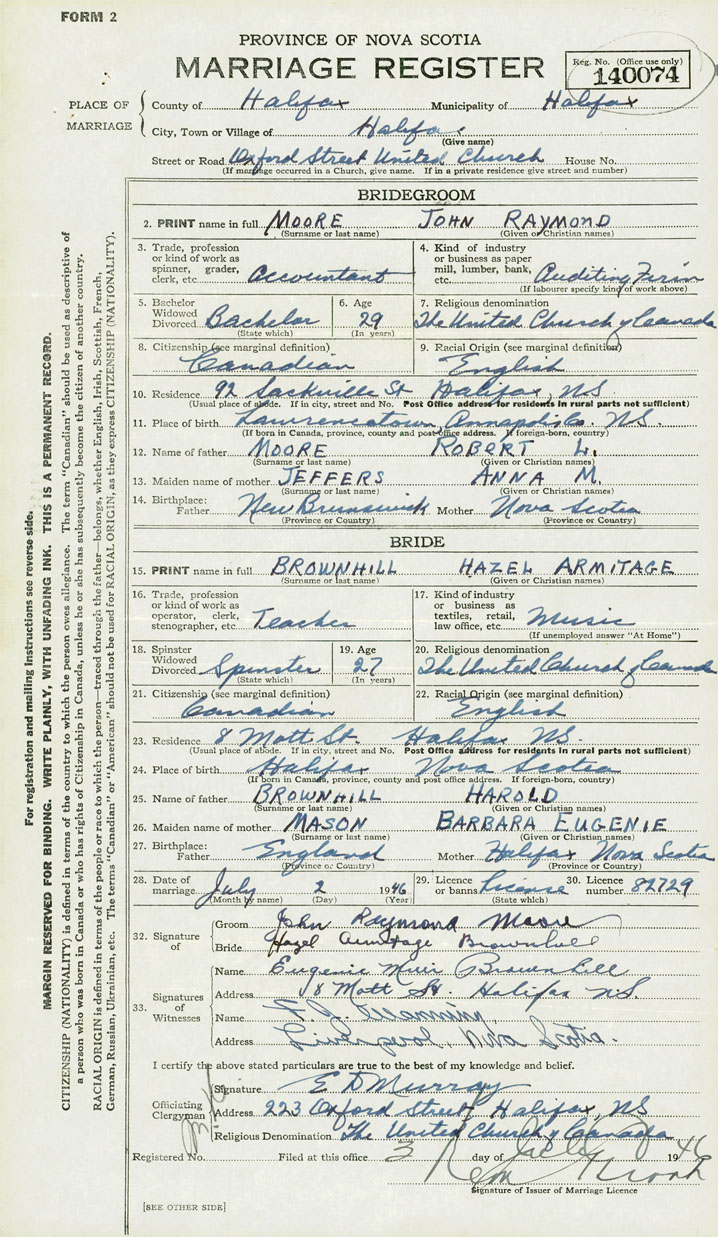 FORM 2
PROVINCE OF NOVA SCOTIA
MARRIAGE REGISTER
Reg. No. (Office use only)
140074
PLACE OF MARRIAGE
County of Halifax Municipality of Halifax
City, Town or Village of Halifax
(Give name)
Street or Road Oxford Street United Church House No.
(If marriage occurred in a Church, give name. If in a private residence give street and number)
BRIDEGROOM
2. PRINT name in full MOORE JOHN RAYMOND
(Surname or last name) (Given or Christian names)
3. Trade, profession or kind of work as spinner, grader, clerk, etc. Accountant
4. Kind of industry or business as paper mill, lumber, bank, etc. Auditing Firm
(If labourer specify kind of work above)
5. Bachelor Widowed Divorced Bachelor
(State which)
6. Age 29
(In years)
7. Religious denomination
The United Church of Canada
8. Citizenship (see marginal definition)
Canadian
9. Racial Origin (see marginal definition)
English
10. Residence 92 Sackville St Halifax, NS
(Usual place of abode. If in city, street and No. Post Office address for residents in rural parts not sufficient)
11. Place of birth Lawrencetown, Annapolis. NS.
(If born in Canada, province, county and post office address. If foreign-born, country)
12. Name of father MOORE ROBERT L.
(Surname or last name) (Given or Christian names)
13. Maiden name of mother JEFFERS ANNA M.
(Surname or last name) (Given or Christian names)
14. Birthplace: Father New Brunswick Mother Nova Scotia
(Province or Country) (Province or Country)
BRIDE
15. PRINT name in full BROWNHILL HAZEL ARMITAGE
(Surname or last name) (Given or Christian names)
16. Trade, profession or kind of work as operator, clerk, stenographer, etc. Teacher
17. Kind of industry or business as textiles, retail, law office, etc. Music
(If unemployed answer "At Home")
18. Spinster Widowed Divorced Spinster
(State which)
19. Age 27
(In years)
20. Religious denomination
The United Church of Canada
21. Citizenship (see marginal definition)
Canadian
22. Racial Origin (see marginal definition)
English
23. Residence 8 Mott St. Halifax NS.
(Usual place of abode. If in city, street and No. Post Office address for residents in rural parts not sufficient)
24. Place of birth Halifax Nova Scotia
(If born in Canada, province, county and post office address. If foreign-born, country)
25. Name of father BROWNHILL HAROLD
(Surname or last name) (Given or Christian names)
26. Maiden name of mother MASON BARBARA EUGENIE
(Surname or last name) (Given or Christian names)
27. Birthplace: Father England Mother Halifax Nova Scotia
(Province or Country) (Province or Country)
28. Date of marriage July 2 1946
(Month by name) (Day) (Year)
29. Licence or banns License
(State which)
30. Licence number 82729
32. Signature of
Groom John Raymond Moore
Bride Hazel Armitage Brownhill
33. Signatures of Witnesses
Name Eugenie Muir Brownhill
Address 8 Mott St. Halifax N.S.
Name F. J. Manning,
Address Liverpool, Nova Scotia.
I certify the above stated particulars are true to the best of my knowledge and belief.
Officiating Clergyman
Signature E D Murray
Address 223 Oxford Street, Halifax, NS
Religious Denomination The United Church of Canada
Registered No. Filed at this office 3 day of July 1946
Signature of Issuer of Marriage Licence
[SEE OTHER SIDE]
For registration and mailing instructions see reverse side.
MARGIN RESERVED FOR BINDING. WRITE PLAINLY, WITH UNFADING INK. THIS IS A PERMANENT RECORD.
CITIZENSHIP (NATIONALITY) is defined in terms of the country to which the person owes allegiance. The term "Canadian" should be used as descriptive of
a person who was born in Canada or who has rights of Citizenship in Canada, unless he or she has subsequently become the citizen of another country.
RACIAL ORIGIN is defined in terms of the people or race to which the person—traced through the father—belongs, whether English, Irish, Scottish, French,
German, Russian, Ukrainian, etc. The terms "Canadian" or "American" should not be used for RACIAL ORIGIN, as they express CITIZENSHIP (NATIONALITY).